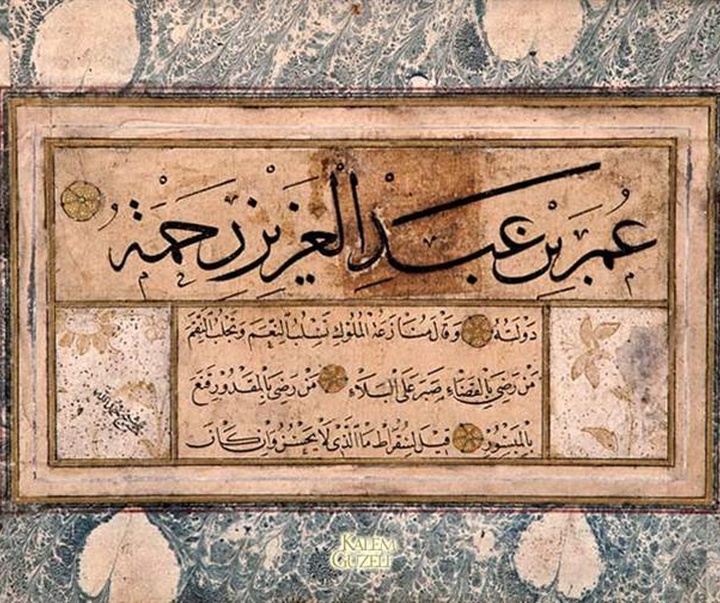 عُمَرُ بْنُ عَبْدِ الْعَزِيزِ رَحْمَةُ
دَوْلَتُهُ وَقَالَ مُنَازَعَةُ الْمُلُوكِ تَسْلُبُ النِّعَمَ وَتَجْلُبُ النِّقَمَ
مَنْ رَضِيَ بِالْقَضَاءِ صَبَرَ عَلَى الْبَلَاءِ مَنْ رَضِيَ بِالْمَقْدُورِ قَنَعَ
بِالْمَيْسُورِ قِيلَ لِسُقْرَاطَ مَا الَّذِي لَا يَحْسُنُ وَإِنْ كَانَ
KALEM
GÜZELİ